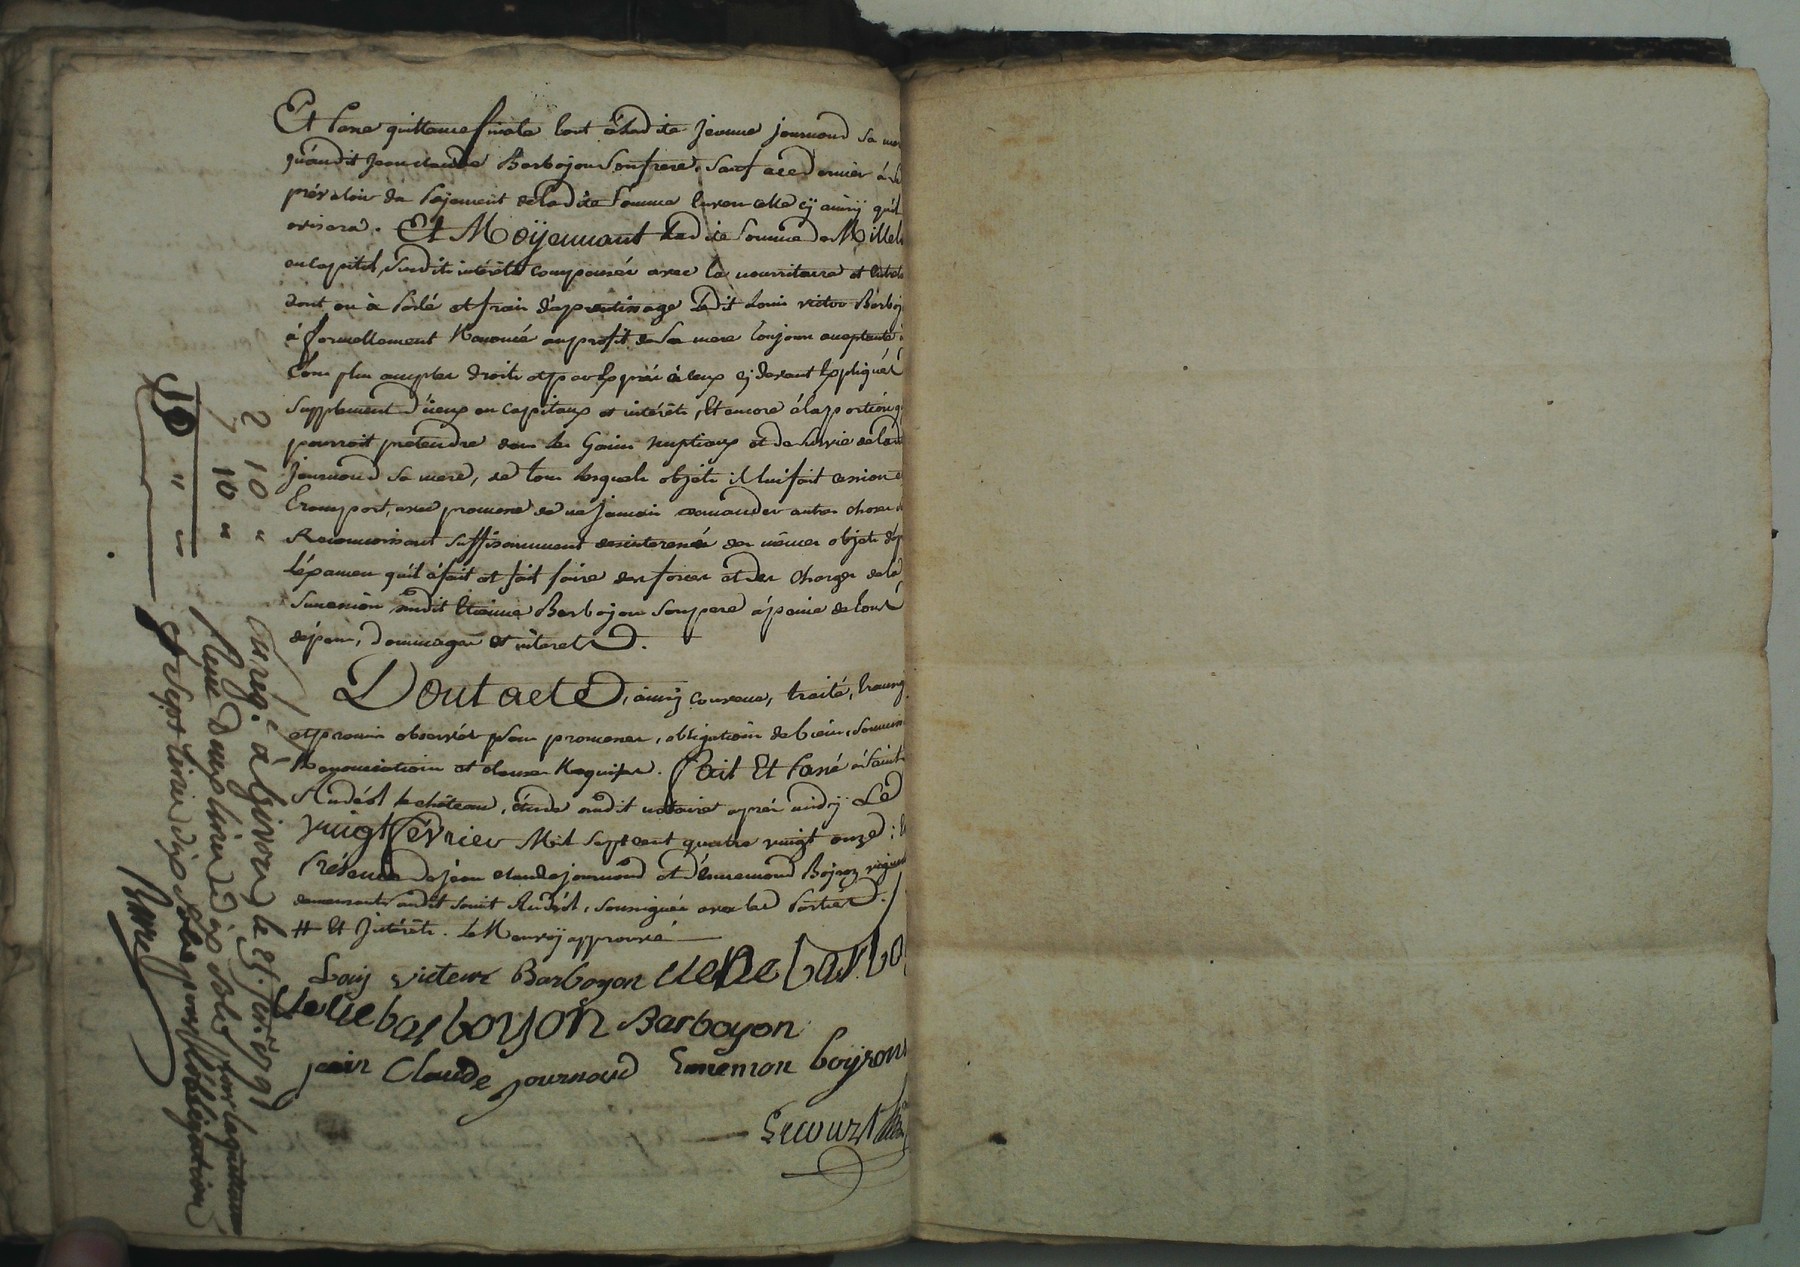 Et passe quittance finale tant à ladite jeanne journoud sa
qu'audit jean claude Barbojon son frere, sauf a ce dernier à se
prévaloir du payement de ladite somme envers celle cy ainsy qu'il
avisera. Et Moÿennant ladite somme de Mille
en capital, susdits intérêts compensés avec la nourriture et
dont on à parlé et frais d'aprentissage ledit Louis victor
à formellement Renoncé au profit de sa mere toujours acceptante
tous plus amples droits et par exprès à ceux cy devant Expliqués
supplement d'iceux en capitaux et intérêts, Et encore à la portion
pourroit prétendre dans les Gains nuptiaux et de survie de
Journoud sa mere, de tous lesquels objets il lui fait cession
transport, avec promesse de ne jamais demander autre chose
Reconnoissant suffisamment desinteressé des mêmes objets
l'examen qu'il à fait et fait faire des forces et des charges de la
succession dudit Etienne Barbojon son pere à peine de tous
dépens, dommages et interets.
Dont acte, ainsy convenu, traité,
et promis observer par promesses, obligation de biens,
Renonciations et clauses Requises. Fait Et Passé à Saint
Andéol le château, étude dudit notaire après midy Le
vingt février Mil sept cent quatre vingt onze;
Présence de jean claude journoud et d'ennemond
demeurants audit saint Andéol, soussignés avec les Parties.
# Et Intérêts. Le Renvoy approuvé
Louis victeur Barboyon
barboyon Barboyon
jean Claude journoud Enemon boyron
2 10 "
7 10 "
10 " "
Enreg.é à Givors le 1791
Reçu deux livres dix sols pour la quittance
et sept livres dix sols pour l'obligation